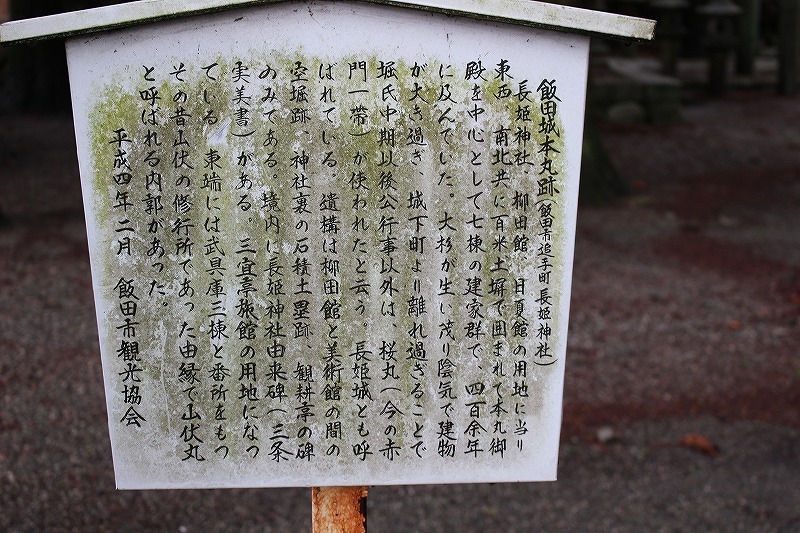 飯田城本丸跡(飯田市追手町 長姫神社)
長姫神社、柳田館、日夏館の用地に当り
東西、南北共に百米土塀で囲まれて本丸御
殿を中心として七棟の建家群で、四百余年
に及んでいた。大杉が生い茂り陰気で建物
が大き過ぎ 城下町より離れ過ぎることで
堀氏中期以後公行事以外は、桜丸(今の赤
門一帯)が使われたと云う。長姫城とも呼
ばれている。遺構は柳田館と美術館の間の
空堀跡、神社裏の石積土塁跡 観耕亭の碑
のみである。境内に長姫神社由来碑(三条
実美書)がある。三宜亭旅館の用地になっ
ている 東端には武具庫三棟と番所をもつ
その昔山伏の修行所であった由縁で山伏丸
と呼ばれる内郭があった。
平成四年二月 飯田市観光協会